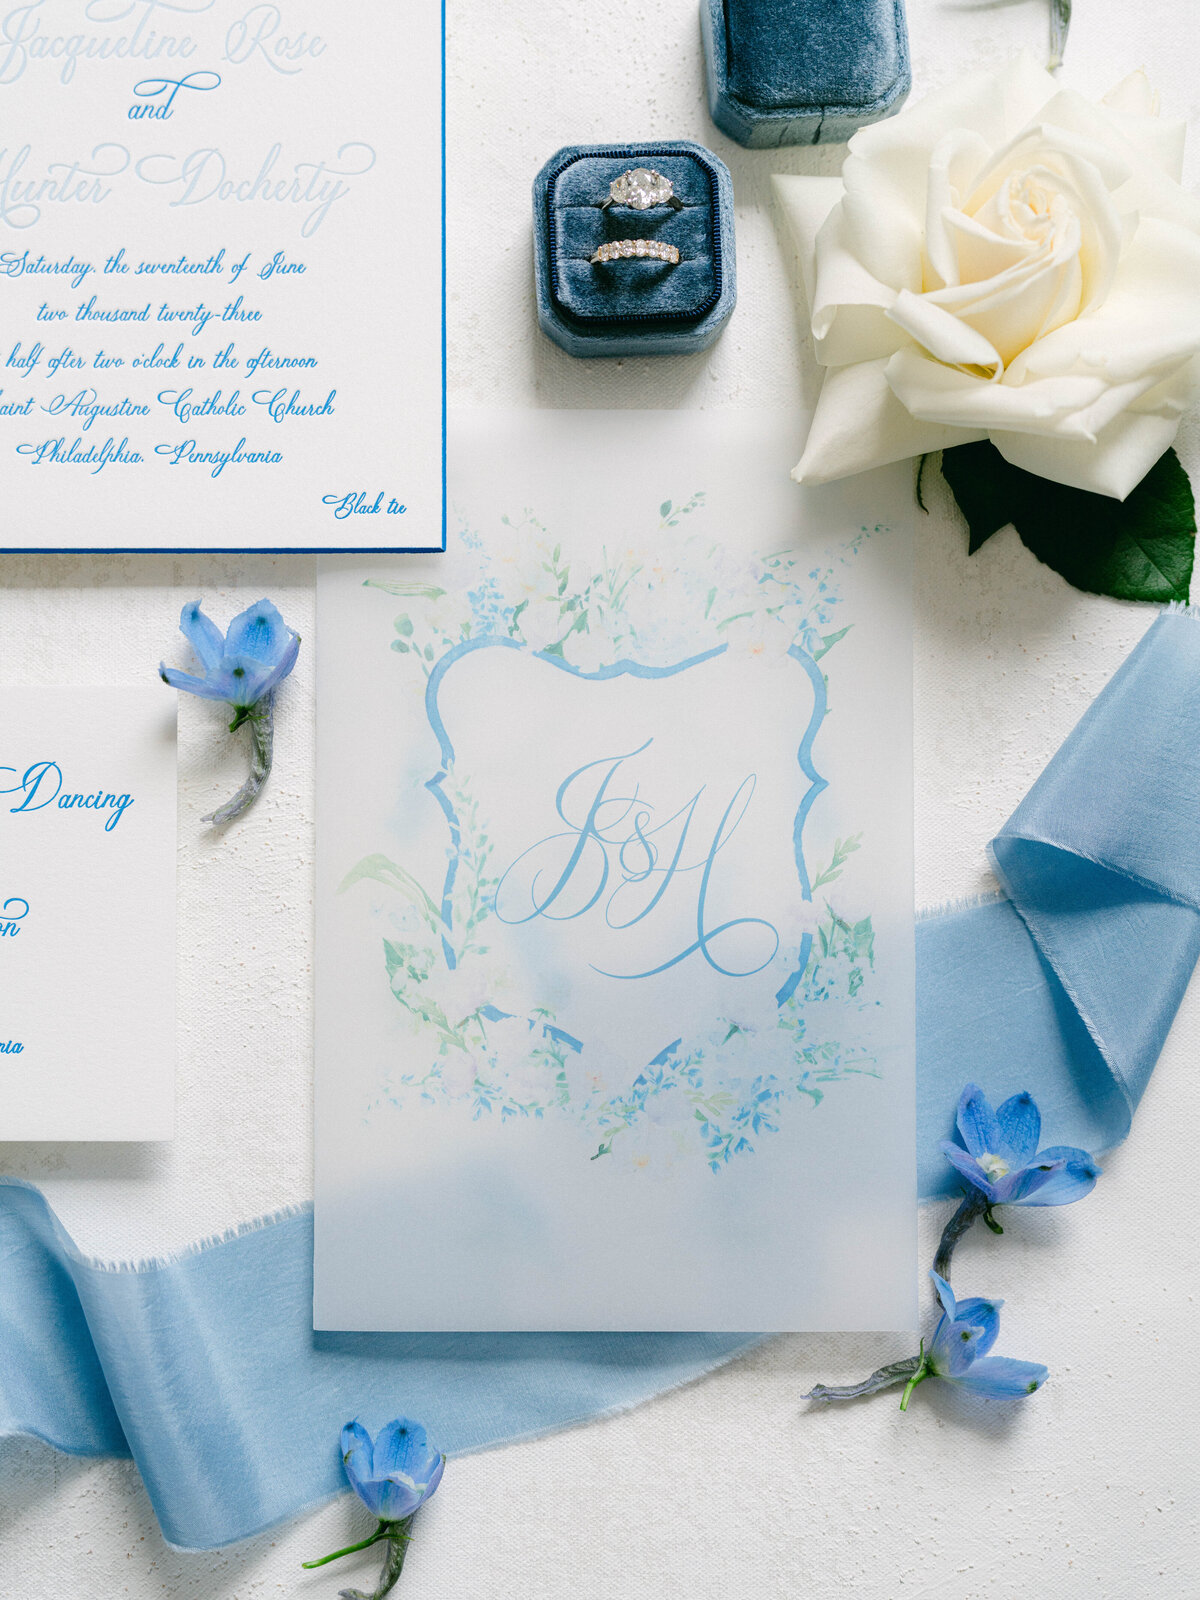 Jacqueline Rose
and
Hunter Docherty
Saturday, the seventeenth of June
two thousand twenty-three
half after two o'clock in the afternoon
Saint Augustine Catholic Church
Philadelphia, Pennsylvania
Black tie
Dancing
J&H